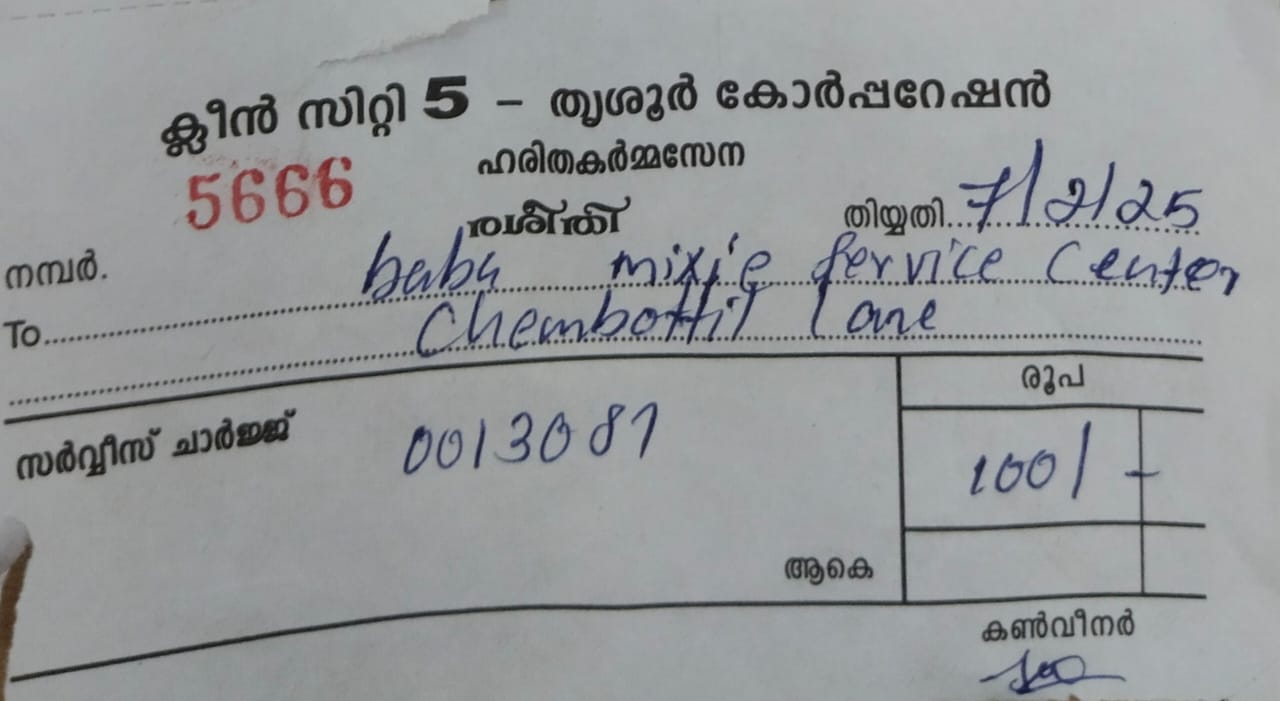 ക്ലീൻ സിറ്റി 5 – തൃശൂർ കോർപ്പറേഷൻ
ഹരിതകർമ്മസേന
5666
രശീതി
തിയ്യതി 7/2/25
നമ്പർ.
To baby mixie service Center
Chembottil lane
രൂപ
സർവ്വീസ് ചാർജ്ജ് 0013081 100/-
ആകെ
കൺവീനർ